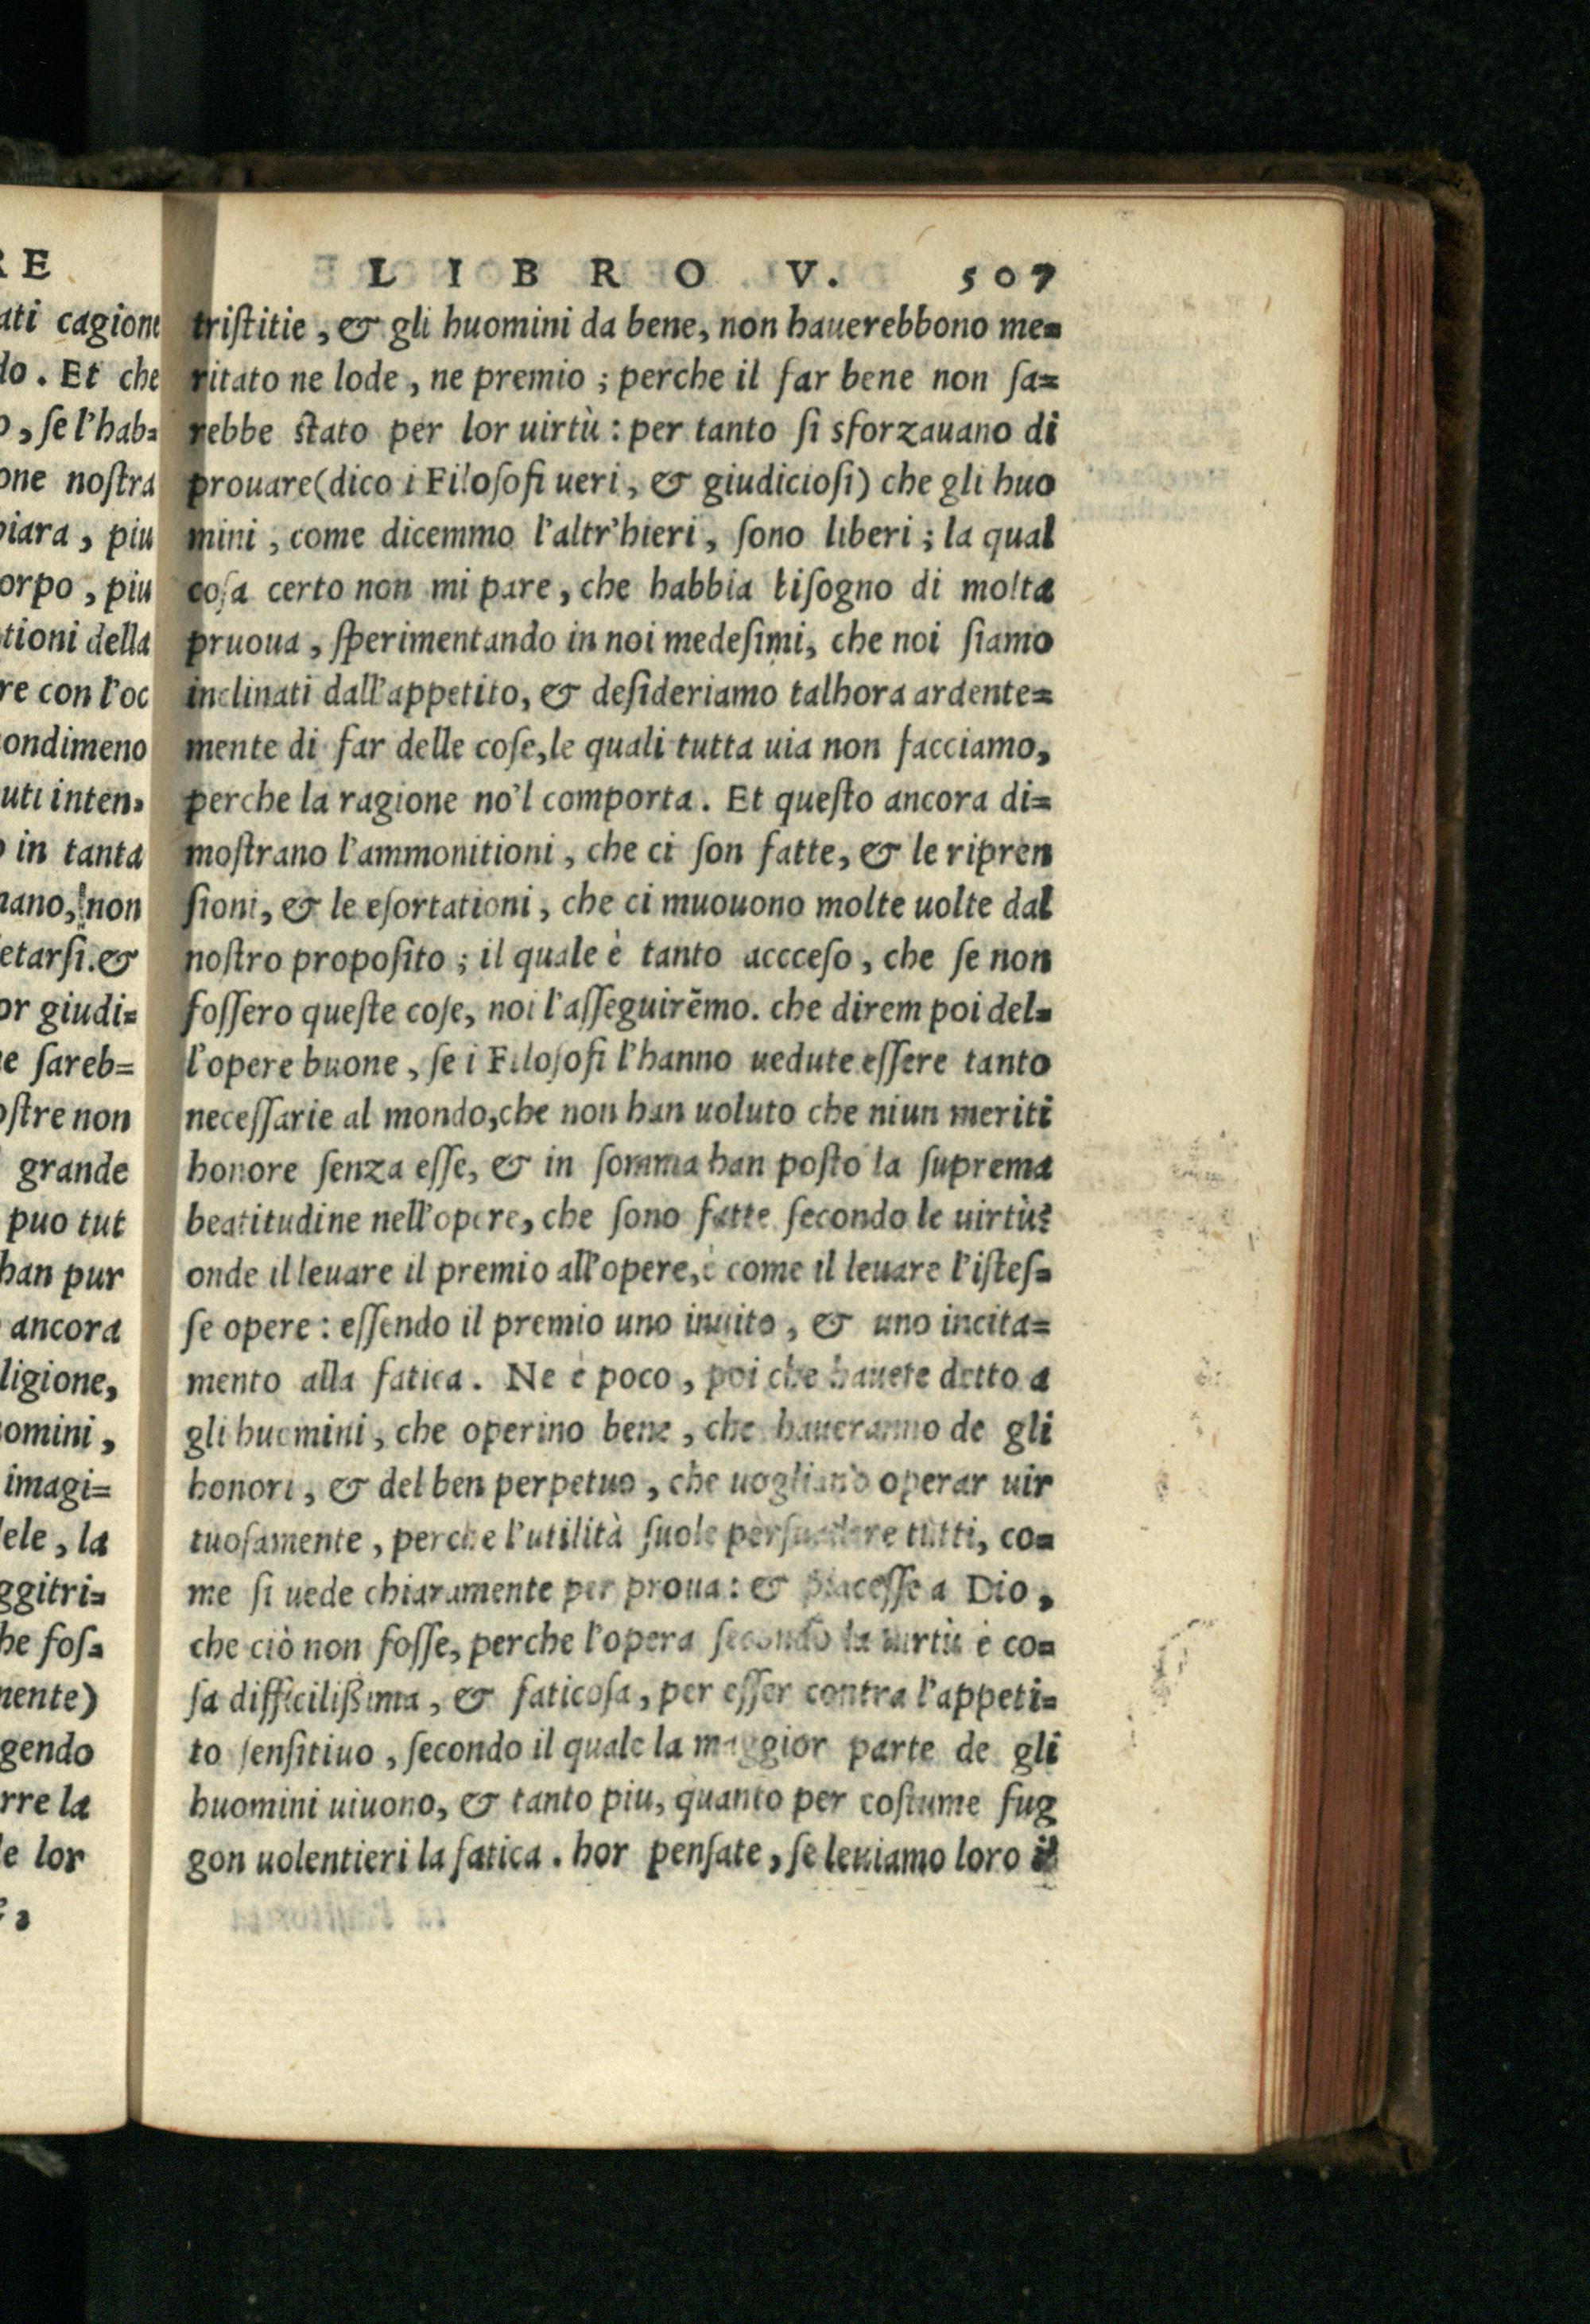 RE
ati cagione
do. Et che
o, ſe l'hab=
one noſtra
biara, piu
orpo, piu
tioni della
re con l'oc
ondimeno
uti inten=
o in tanta
mano, non
etarſi. &
or giudi=
ne ſareb=
oſtre non
grande
puo tut
han pur
ancora
ligione,
omini,
imagi=
dele, la
ggitri=
he foſ=
mente)
gendo
rre la
le lor
LIBRO V. 507
triſtitie, & gli huomini da bene, non hauerebbono me=
ritato ne lode, ne premio; perche il far bene non ſa=
rebbe ſtato per lor uirtù: per tanto ſi sforzauano di
prouare (dico i Filoſofi ueri, & giudicioſi) che gli huo
mini, come dicemmo l'altr'hieri, ſono liberi; la qual
coſa certo non mi pare, che habbia biſogno di molta
pruoua, ſperimentando in noi medeſimi, che noi ſiamo
inclinati dall'appetito, & deſideriamo talhora ardente=
mente di far delle coſe, le quali tutta uia non facciamo,
perche la ragione no'l comporta. Et queſto ancora di=
moſtrano l'ammonitioni, che ci ſon fatte, & le ripren
ſioni, & le eſortationi, che ci muouono molte uolte dal
noſtro propoſito; il quale è tanto accceſo, che ſe non
foſſero queſte coſe, noi l'aſſeguirēmo. che direm poi del=
l'opere buone, ſe i Filoſofi l'hanno uedute eſſere tanto
neceſſarie al mondo, che non han uoluto che niun meriti
honore ſenza eſſe, & in ſomma han poſto la ſuprema
beatitudine nell'opere, che ſono fatte ſecondo le uirtù?
onde il leuare il premio all'opere, è come il leuare l'iſteſ=
ſe opere: eſſendo il premio uno inuito, & uno incita=
mento alla fatica. Ne è poco, poi che hauete detto a
gli huomini, che operino bene, che haueranno de gli
honori, & del ben perpetuo, che uogliano operar uir
tuoſamente, perche l'utilità ſuole perſuadere tutti, co=
me ſi uede chiaramente per proua: & piaceſſe a Dio,
che ciò non foſſe, perche l'opera ſecondo la uirtù è co=
ſa difficilißima, & faticoſa, per eſſer contra l'appeti=
to ſenſitiuo, ſecondo il quale la maggior parte de gli
huomini uiuono, & tanto piu, quanto per coſtume fug
gon uolentieri la fatica. hor penſate, ſe leuiamo loro il